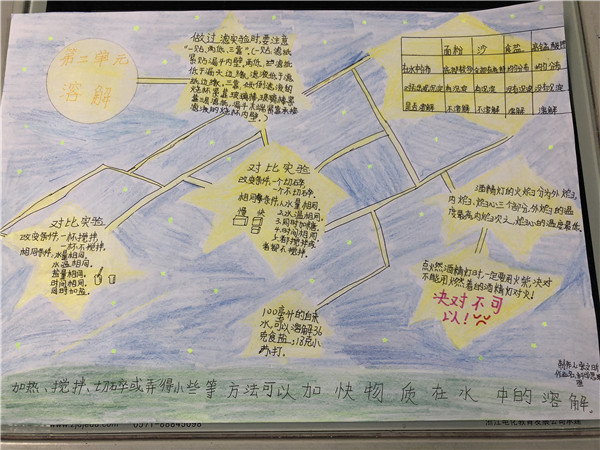 第二单元
溶解
做过滤实验时,要注意
“一贴,两低,三靠”(一贴,滤纸
紧贴漏斗内壁,两低,
低于漏斗边缘,滤液低于滤
纸边缘,三靠,
滤液的烧杯内壁。)
面粉 沙 食盐
不溶解 不溶解 溶解 溶解
对比实验
改变条件,一个切碎,
一个不切碎,
相同条件:1.水量相同,
2.水温相同,
3.同时加糖,
4.时间相同
5.都搅拌或
者都不搅拌。
慢 快
对比实验
改变条件,一杯搅拌,
一杯不搅拌,
相同条件,水量相同,
水温相同,
盐量相同,
时间相同,
同时加盐。
酒精灯的火焰分为外焰,
内焰,焰心三个部分,外焰的温
度最高,内焰次之,焰心的温度最低。
点燃酒精灯时,一定要用火柴,决对
不能用燃着的酒精灯对火!
决对不可
以!
100毫升的自来
水,可以溶解36
克食盐,18克小
苏打。
加热、搅拌、切碎或弄得小些等方法可以加快物质在水中的溶解。
0571-88845098